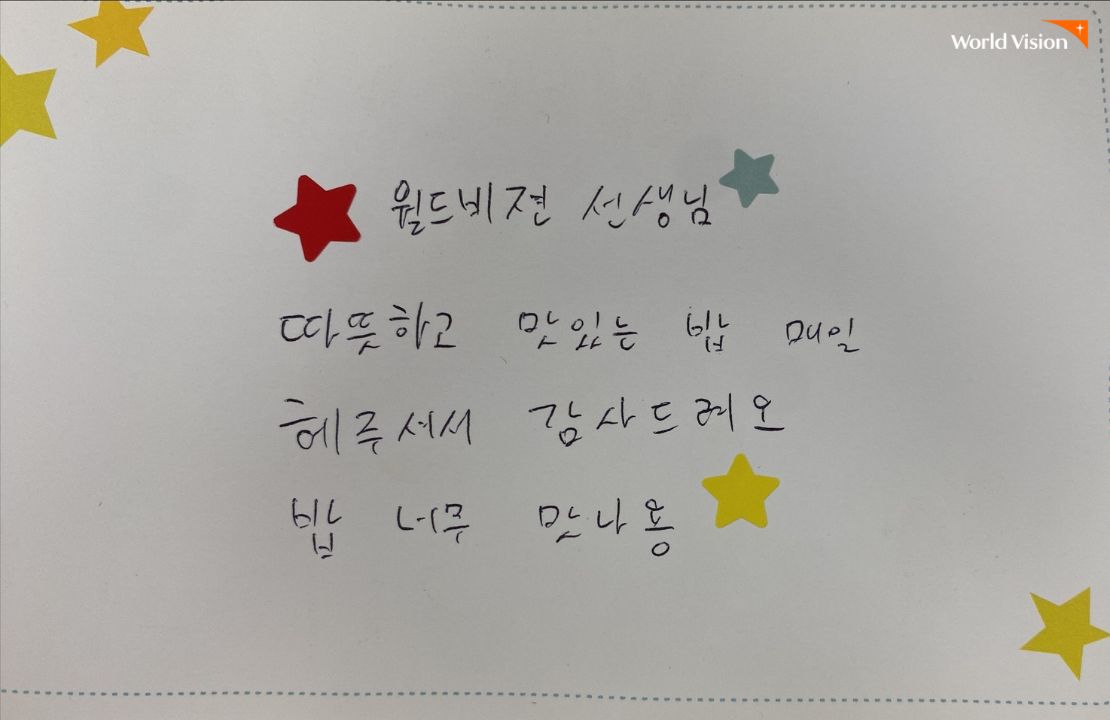 World Vision
월드비젼 선생님
따뜻하고 맛있는 밥 매일
헤주셔서 감사드려오
밥 너무 맛나용